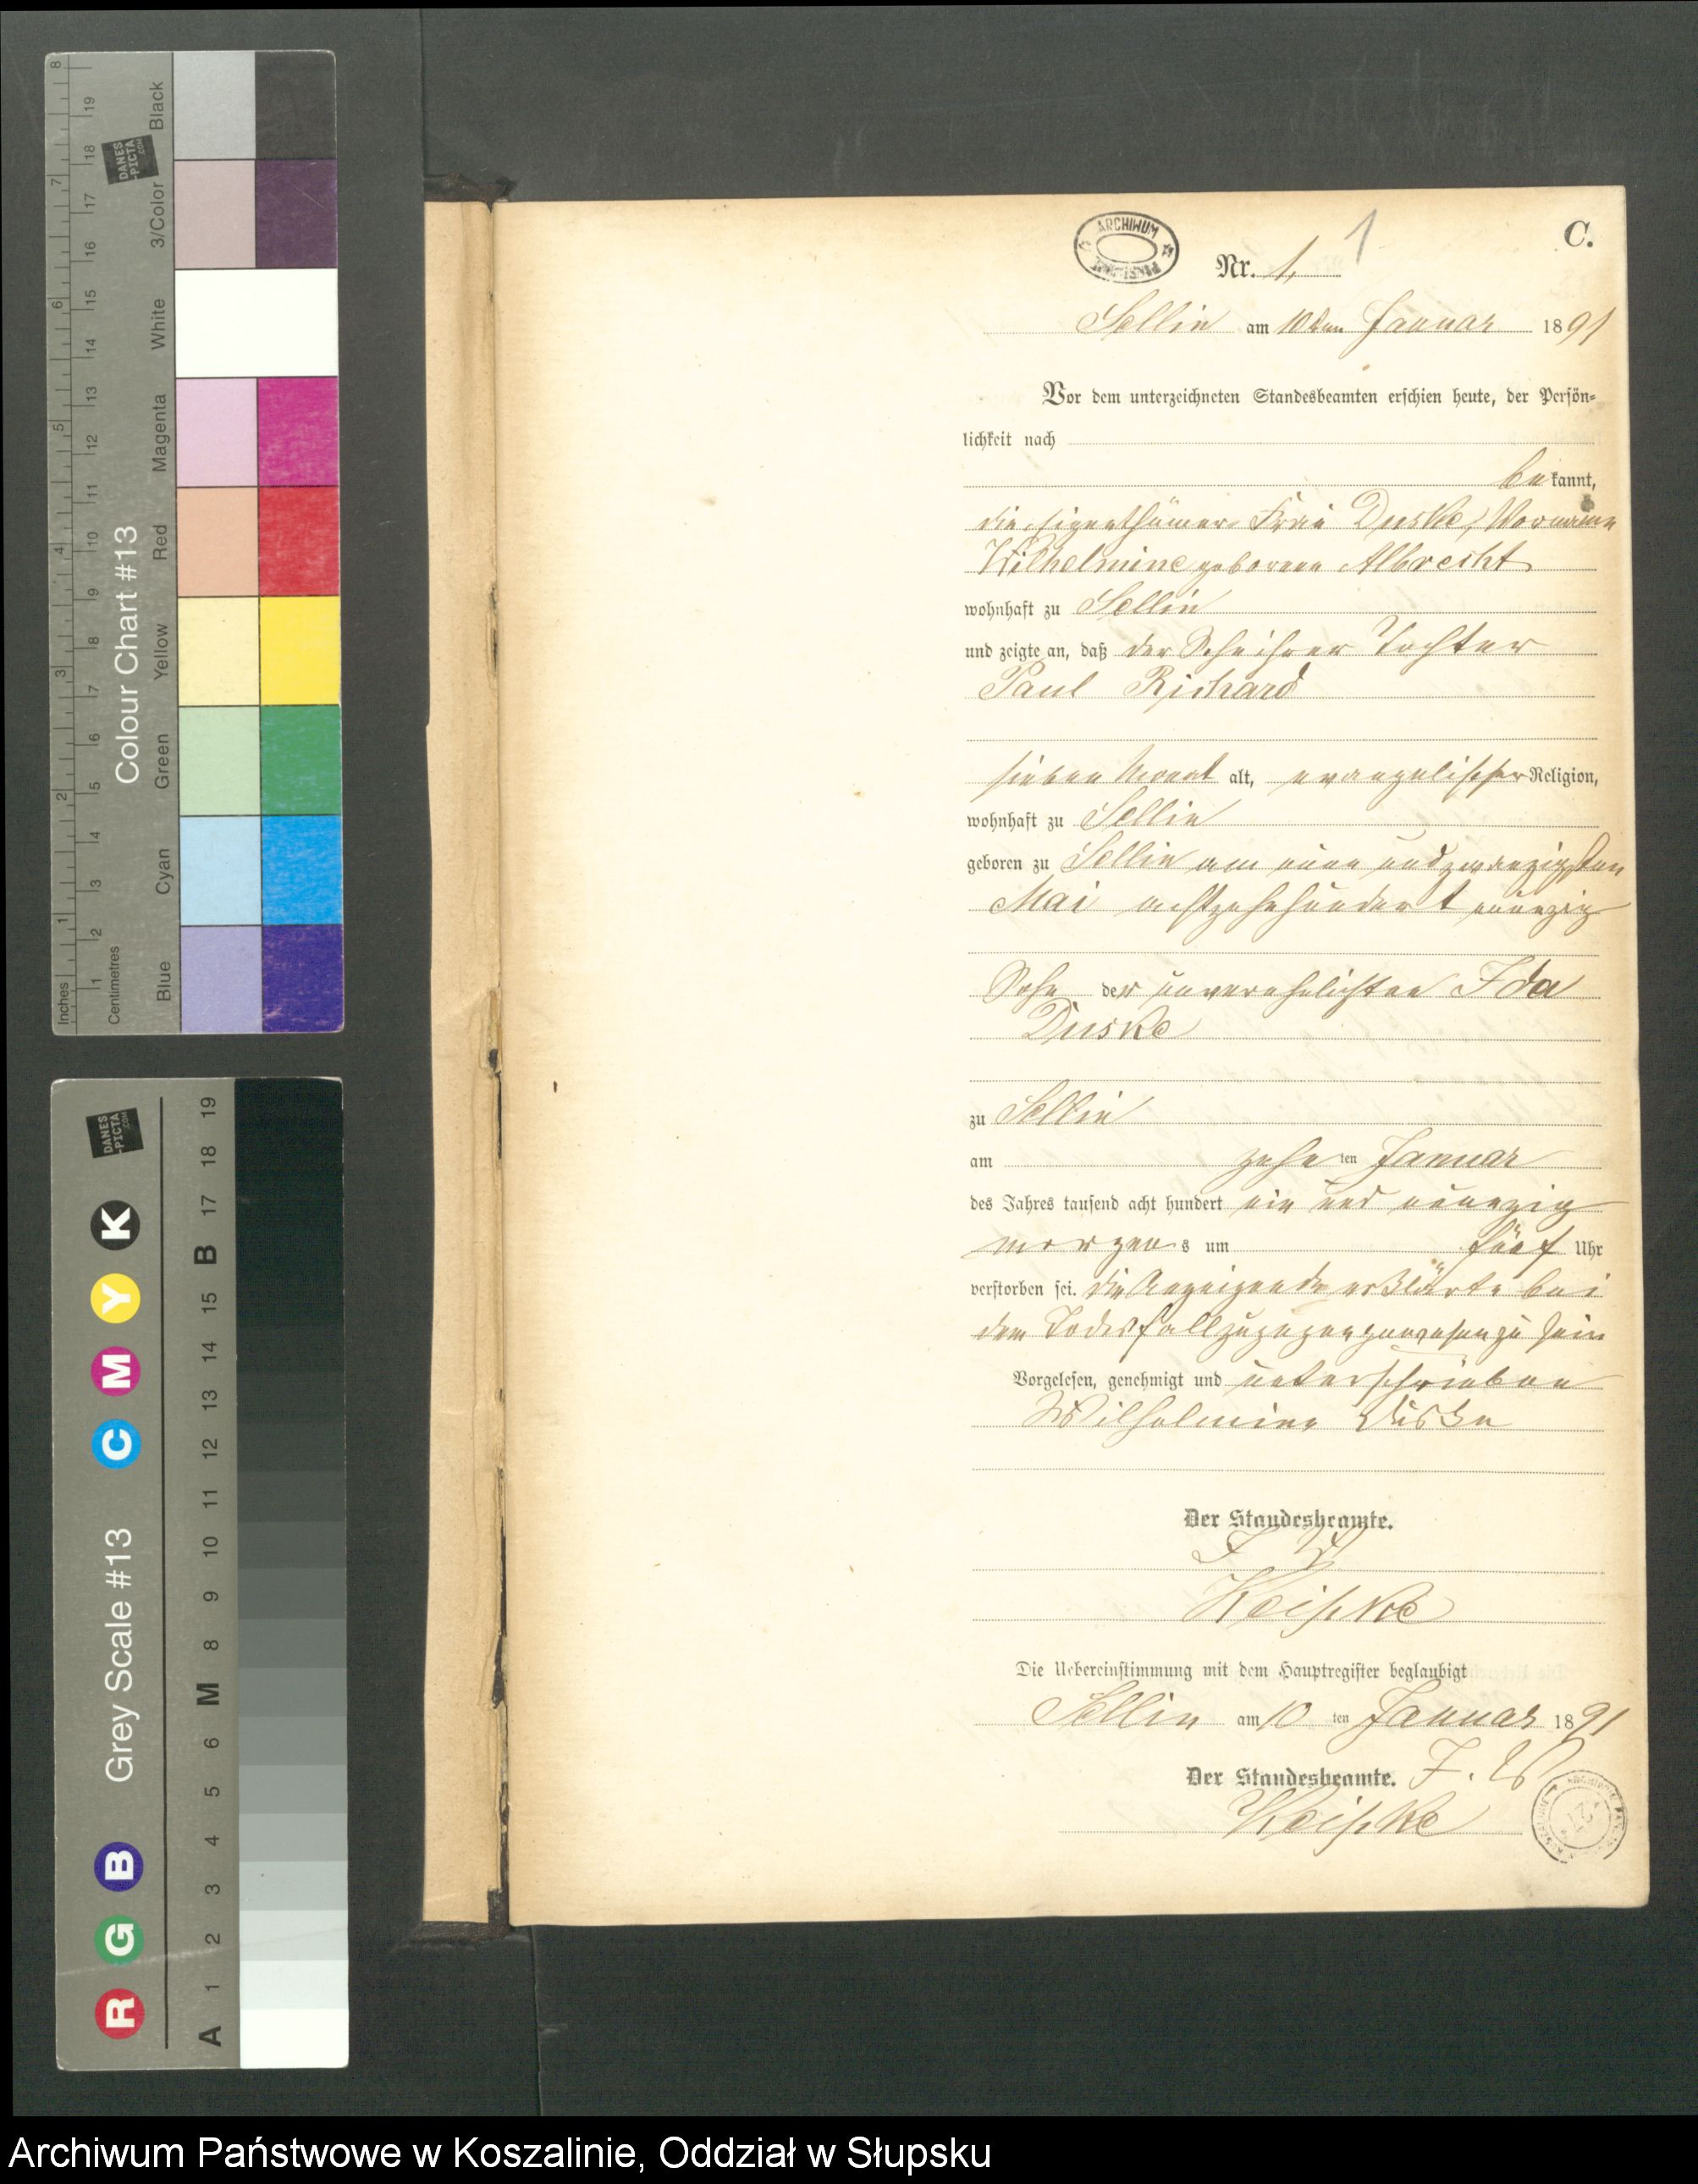 8
7
6
5
4
3
2
1
Inches
19
18
17
16
15
14
13
12
11
10
9
8
7
6
5
4
3
2
1
Centimetres
Colour Chart #13
Blue
Cyan
Green
Yellow
Red
Magenta
White
3/Color
Black
DANES
-PICTA
.COM
Grey Scale #13
R G B C M Y K
DANES
-PICTA
.COM
A 1 2 3 4 5 6 M 8 9 10 11 12 13 14 15 B 17 18 19
C.
ARCHIWUM
1
Nr. 1.
Sellin am 10ten Januar 1891
Vor dem unterzeichneten Standesbeamten erschien heute, der Persön-
lichkeit nach
bekannt,
die Eigenthümer Frau Duske, Vorname
Wilhelmine geborene Albrecht
wohnhaft zu Sellin
und zeigte an, daß der Sohn ihrer Tochter
Paul Richard
sieben Monat alt, evangelischer Religion,
wohnhaft zu Sellin
geboren zu Sellin am neun und zwanzigsten
Mai achtzehnhundert neunzig
Sohn der unverehelichten Ida
Duske
zu Sellin
am zehnten Januar
des Jahres tausend acht hundert ein und neunzig
morgens um fünf Uhr
verstorben sei. die Anzeigende erklärte bei
dem Todesfall zugegen gewesen zu sein
Vorgelesen, genehmigt und unterschrieben
Wilhelmine Duske
Der Standesbeamte.
I. V.
Der Standesbeamte.
Die Uebereinstimmung mit dem Hauptregister beglaubigt
Sellin am 10 ten Januar 1891
Der Standesbeamte. I. V.
Archiwum Państwowe w Koszalinie, Oddział w Słupsku